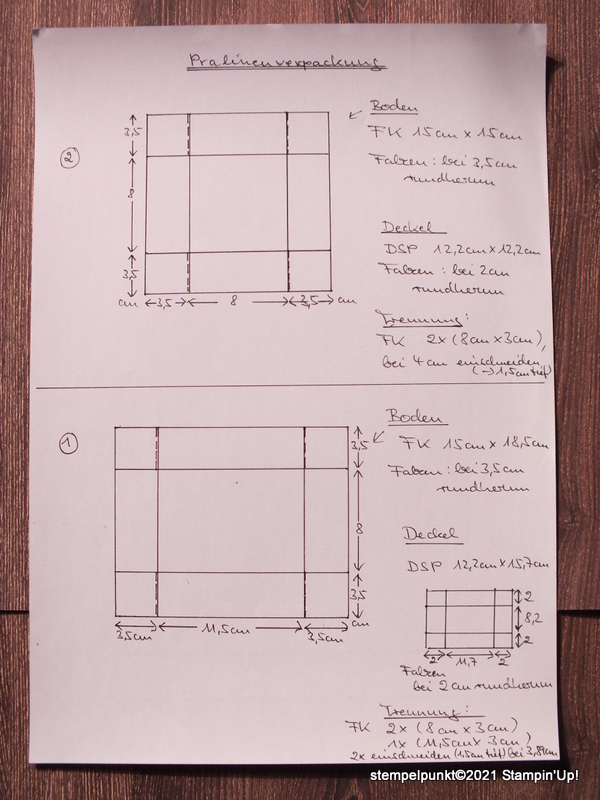 Pralinenverpackung
②
3,5
8
3,5
cm
3,5
8
3,5
cm
Boden
FK 15cm x 15cm
Falzen: bei 3,5cm
rundherum
Deckel
DSP 12,2cm x 12,2cm
Falzen: bei 2cm
rundherum
Trennung:
FK 2x (8cm x 3cm),
bei 4cm einschneiden
(→ 1,5cm tief)
①
3,5
8
3,5
cm
3,5cm
11,5cm
3,5cm
Boden
FK 15cm x 18,5cm
Falzen: bei 3,5cm
rundherum
Deckel
DSP 12,2cm x 15,7cm
2
8,2
2
2
11,7
2
Falzen
bei 2cm rundherum
Trennung:
FK 2x (8cm x 3cm)
1x (11,5cm x 3cm)
2x einschneiden (1,5cm tief) bei 3,84cm
stempelpunkt©2021 Stampin'Up!